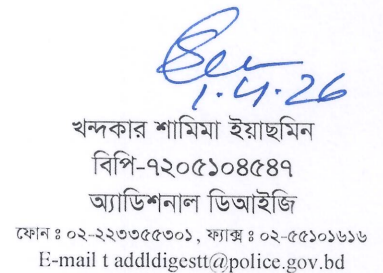 1.4.26
খন্দকার শামিমা ইয়াছমিন
বিপি-৭২০৫১০৪৫৪৭
অ্যাডিশনাল ডিআইজি
ফোন ঃ ০২-২২৩৩৫৫৩০১, ফ্যাক্স ঃ ০২-৫৫১০১৬১৬
E-mail t addldigestt@police.gov.bd